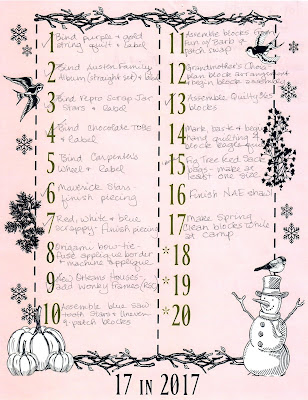 1 Bind purple & gold
string quilt & label
2 Bind Austen Family
Album (straight set) & label
3 Bind Repro Scrap Jar
Stars & label
4 Bind Chocolate Tote
& label
5 Bind Carpenter's
Wheel & label
6 Maverick Stars-
finish piecing
7 Red, white & blue
scrappy- finish piecing
8 Origami bow-tie-
fuse applique border
& machine applique
9 New Orleans Houses-
add wonky frames
10 Assemble blue saw
tooth stars & uneven
9 patch blocks
11 Assemble blocks from
Run of Barb &
patch swap
12 Grandmother's Choice
plan block arrangement
begin block assembly
13 Assemble Quilty 365
blocks
14 Mark, baste & begin
hand quilting
block eagle quilt
15 Fig Tree Feed Sack
Bags- make at
least one size
16 Finish shawl
17 Make Spring
Clean blocks while
at camp
*18
*19
*20
17 IN 2017